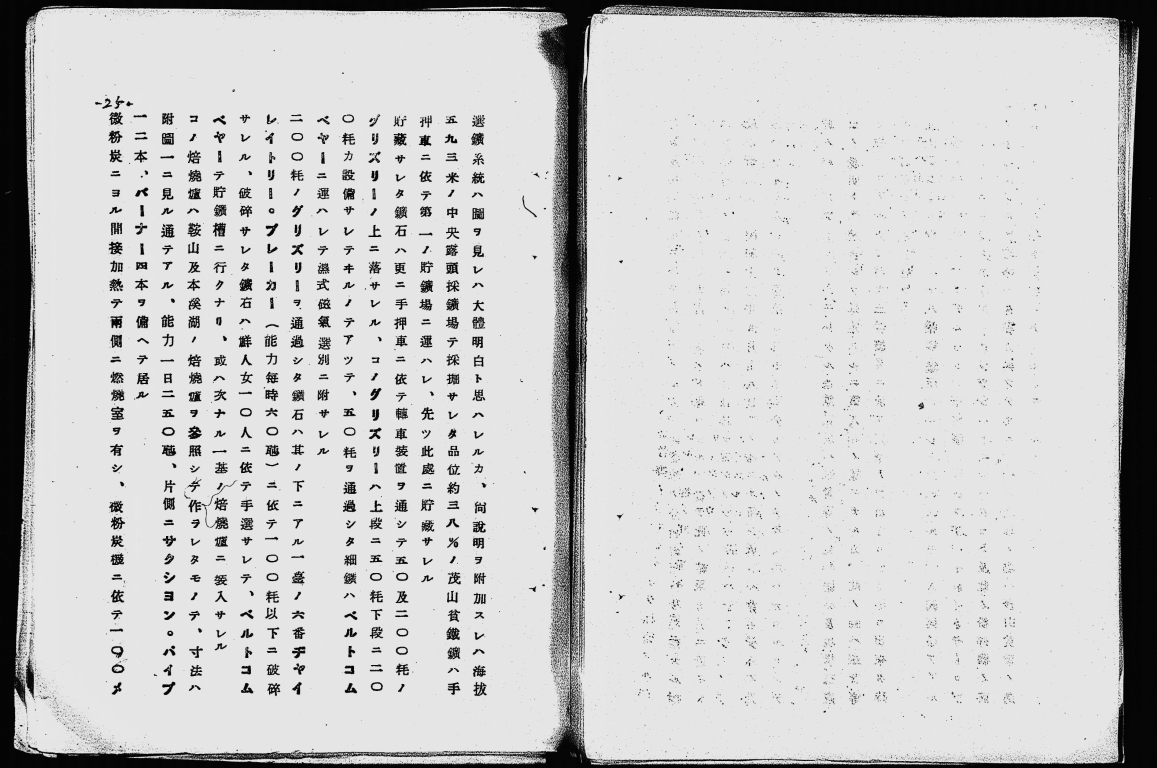 選鑛系統ハ圖ヲ見レハ大體明白ト思ハレルカ、尙說明ヲ附加スレハ海拔
五九三米ノ中央露頭採鑛場テ採掘サレタ品位約三八%ノ茂山貧鐵鑛ハ手
押車ニ依テ第一ノ貯鑛場ニ運ハレ、先ツ此處ニ貯藏サレル
貯藏サレタ鑛石ハ更ニ手押車ニ依テ轉車裝置ヲ通シテ五〇及二〇〇粍ノ
グリズリーノ上ニ落サレル、コノグリズリーハ上段ニ五〇粍下段ニ二〇
〇粍カ設備サレテヰルノテアツテ、五〇粍ヲ通過シタ細鑛ハベルトコム
ベヤーニ運ハレテ濕式磁氣選別ニ附サレル
二〇〇粍ノグリズリーヲ通過シタ鑛石ハ其ノ下ニアル一臺ノ六番ヂヤイ
レイトリー。ブレーカー(能力每時六〇瓲)ニ依テ一〇〇粍以下ニ破碎
サレル、破碎サレタ鑛石ハ鮮人女一〇人ニ依テ手選サレテ、ベルトコム
ベヤーテ貯鑛槽ニ行クナリ、或ハ次ナル一基ノ焙燒爐ニ裝入サレル
コノ焙燒爐ハ鞍山及本溪湖ノ焙燒爐ヲ參照シテ作ラレタモノテ、寸法ハ
附圖一ニ見ル通テアル、能力一日二五〇瓲、片側ニサクシヨン。パイプ
一二本、バーナー四本ヲ備ヘテ居ル
微粉炭ニヨル間接加熱テ兩側ニ燃燒室ヲ有シ、微粉炭機ニ依テ一〇〇メ
-25-